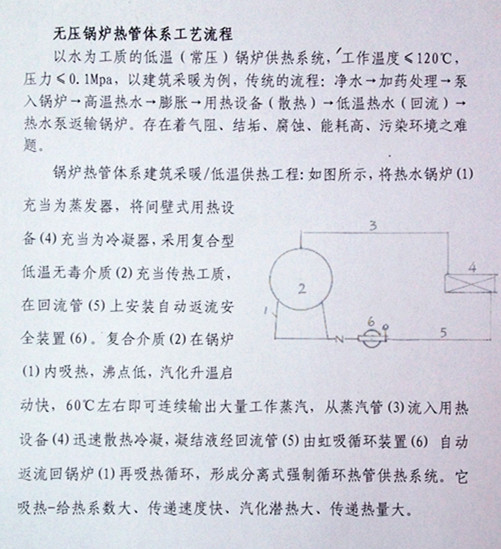 无压锅炉热管体系工艺流程
以水为工质的低温（常压）锅炉供热系统，工作温度≤120℃，
压力≤0.1Mpa，以建筑采暖为例，传统的流程：净水→加药处理→泵
入锅炉→高温热水→膨胀→用热设备（散热）→低温热水（回流）→
热水泵返输锅炉。存在着气阻、结垢、腐蚀、能耗高、污染环境之难
题。
锅炉热管体系建筑采暖/低温供热工程：如图所示，将热水锅炉(1)
充当为蒸发器，将间壁式用热设
备(4)充当为冷凝器，采用复合型
低温无毒介质(2)充当传热工质，
在回流管(5)上安装自动返流安
全装置(6)。复合介质(2)在锅炉
(1)内吸热，沸点低，汽化升温启
动快，60℃左右即可连续输出大量工作蒸汽，从蒸汽管(3)流入用热
设备(4)迅速散热冷凝，凝结液经回流管(5)由虹吸循环装置(6) 自动
返流回锅炉(1)再吸热循环，形成分离式强制循环热管供热系统。它
吸热-给热系数大、传递速度快、汽化潜热大、传递热量大。
3
4
2
1
6
N
5